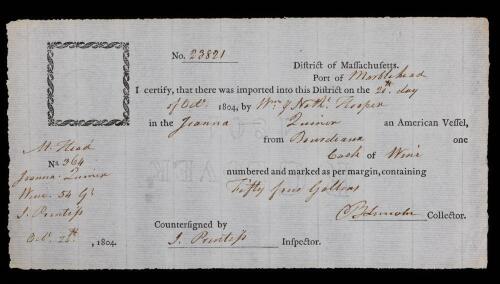 No. 23821
District of Massachusetts.
Port of Marblehead
I certify, that there was imported into this District on the 26th day
of Octr. 1804, by Wm & Nathl Hooper
in the Joanna Quiner an American Vessel,
from Bourdeaux one
Cask of Wine
numbered and marked as per margin, containing
Fifty four Gallons
Collector.
Countersigned by
J. Prentiss Inspector.
M. Head
No 364
Joanna. Quiner
Wine. 54 Gs
J. Prentiss
Octr. 26th, 1804.